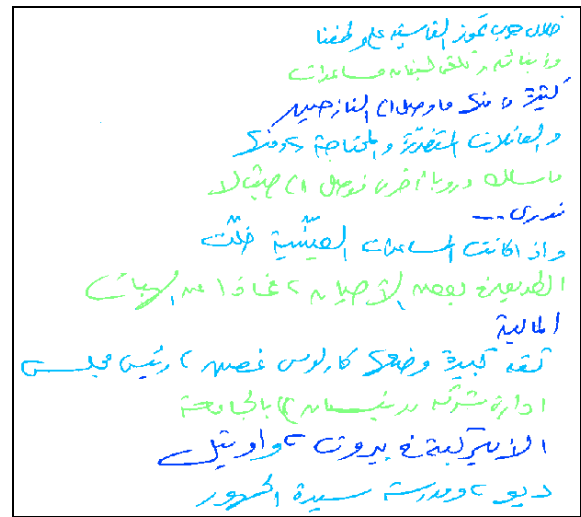 خلال حرب تموز القاسية على وطننا
وأبنائه، تلقى لبنان مساعدات
كثيرة، منها ما وصل الى النازحين
والعائلات المتضررة والمحتاجة، ومنها
ما سلك دروبا أخرى توصل الى حيث لا
ندري...
واذا كانت المساعدات العينية ضلّت
الطريق في بعض الأحيان، فماذا عن الهبات
المالية
ثقة كبيرة وضعها كارلوس غصن، رئيس مجلس
ادارة شركة نيسان، بالجامعة
الأميركية في بيروت، وأوتيل
ديو، ومدرسة سيدة الجمهور